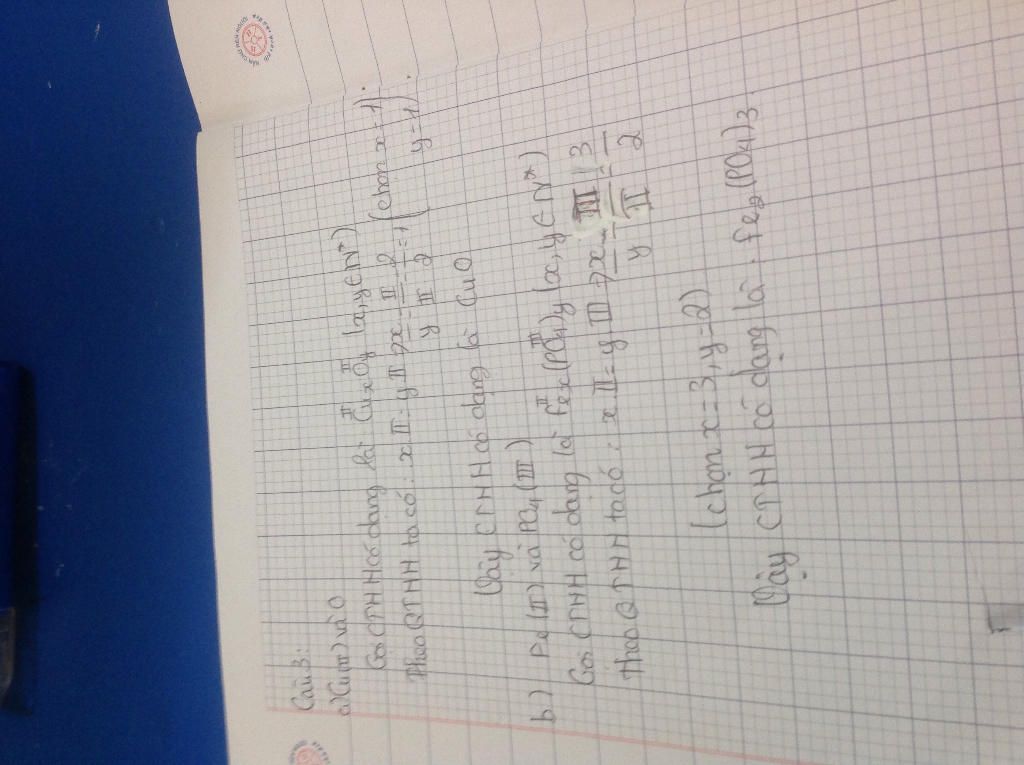 Câu 3:
a) Cu(II) và O
Gọi CTHH có dạng là Cu^II_x O^II_y (x,y ∈ N*)
Theo QTHH ta có: x.II = y.II → x/y = II/II = 2/2 = 1 (chọn x=1, y=1).
Vậy CTHH có dạng là CuO
b) Fe(II) và PO4(III)
Gọi CTHH có dạng là Fe^II_x (PO4)^III_y (x,y ∈ N*)
Theo QTHH ta có: x II = y III → x/y = III/II = 3/2
(chọn x=3, y=2)
Vậy CTHH có dạng là: Fe2(PO4)3.